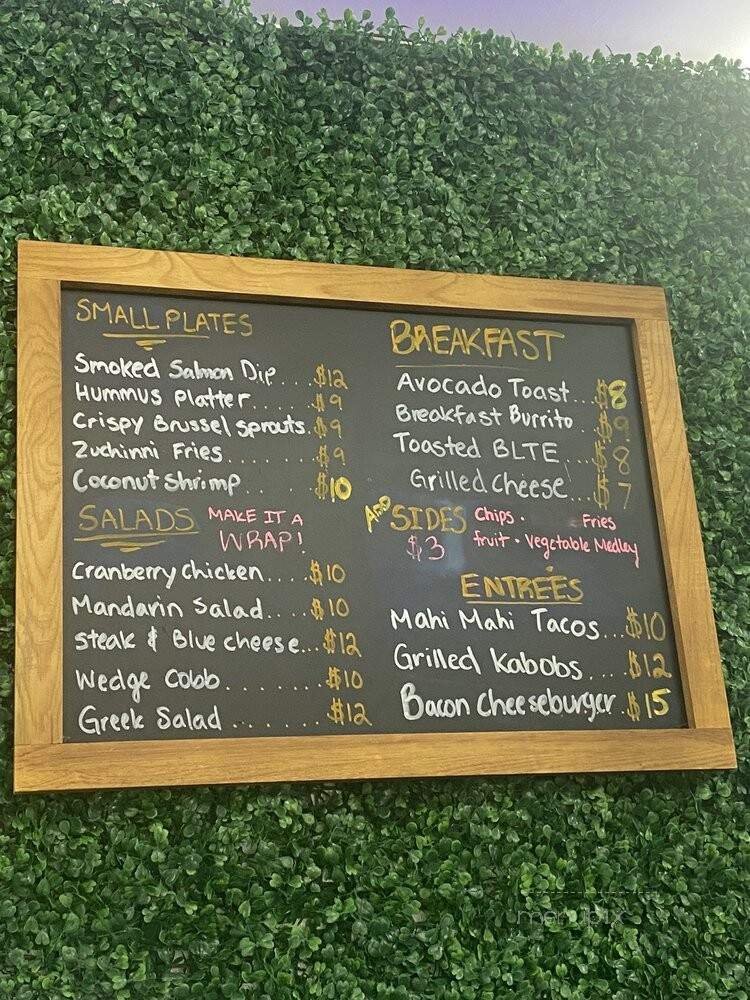 SMALL PLATES
Smoked Salmon Dip....$12
Hummus Platter......$9
Crispy Brussel sprouts.$9
Zuchinni Fries......$9
Coconut Shrimp.. ....$10
SALADS MAKE IT A
WRAP!
Cranberry Chicken....$10
Mandarin Salad.....$10
Steak & Blue cheese...$12
Wedge Cobb........$10
Greek Salad........$12
BREAKFAST
Avocado Toast...$8
Breakfast Burrito..$9
Toasted BLTE...$8
Grilled Cheese...$7
ADD SIDES Chips · Fries
$3 fruit · Vegetable Medley
ENTREÉS
Mahi Mahi Tacos...$10
Grilled Kabobs....$12
Bacon Cheeseburger.$15
menupix